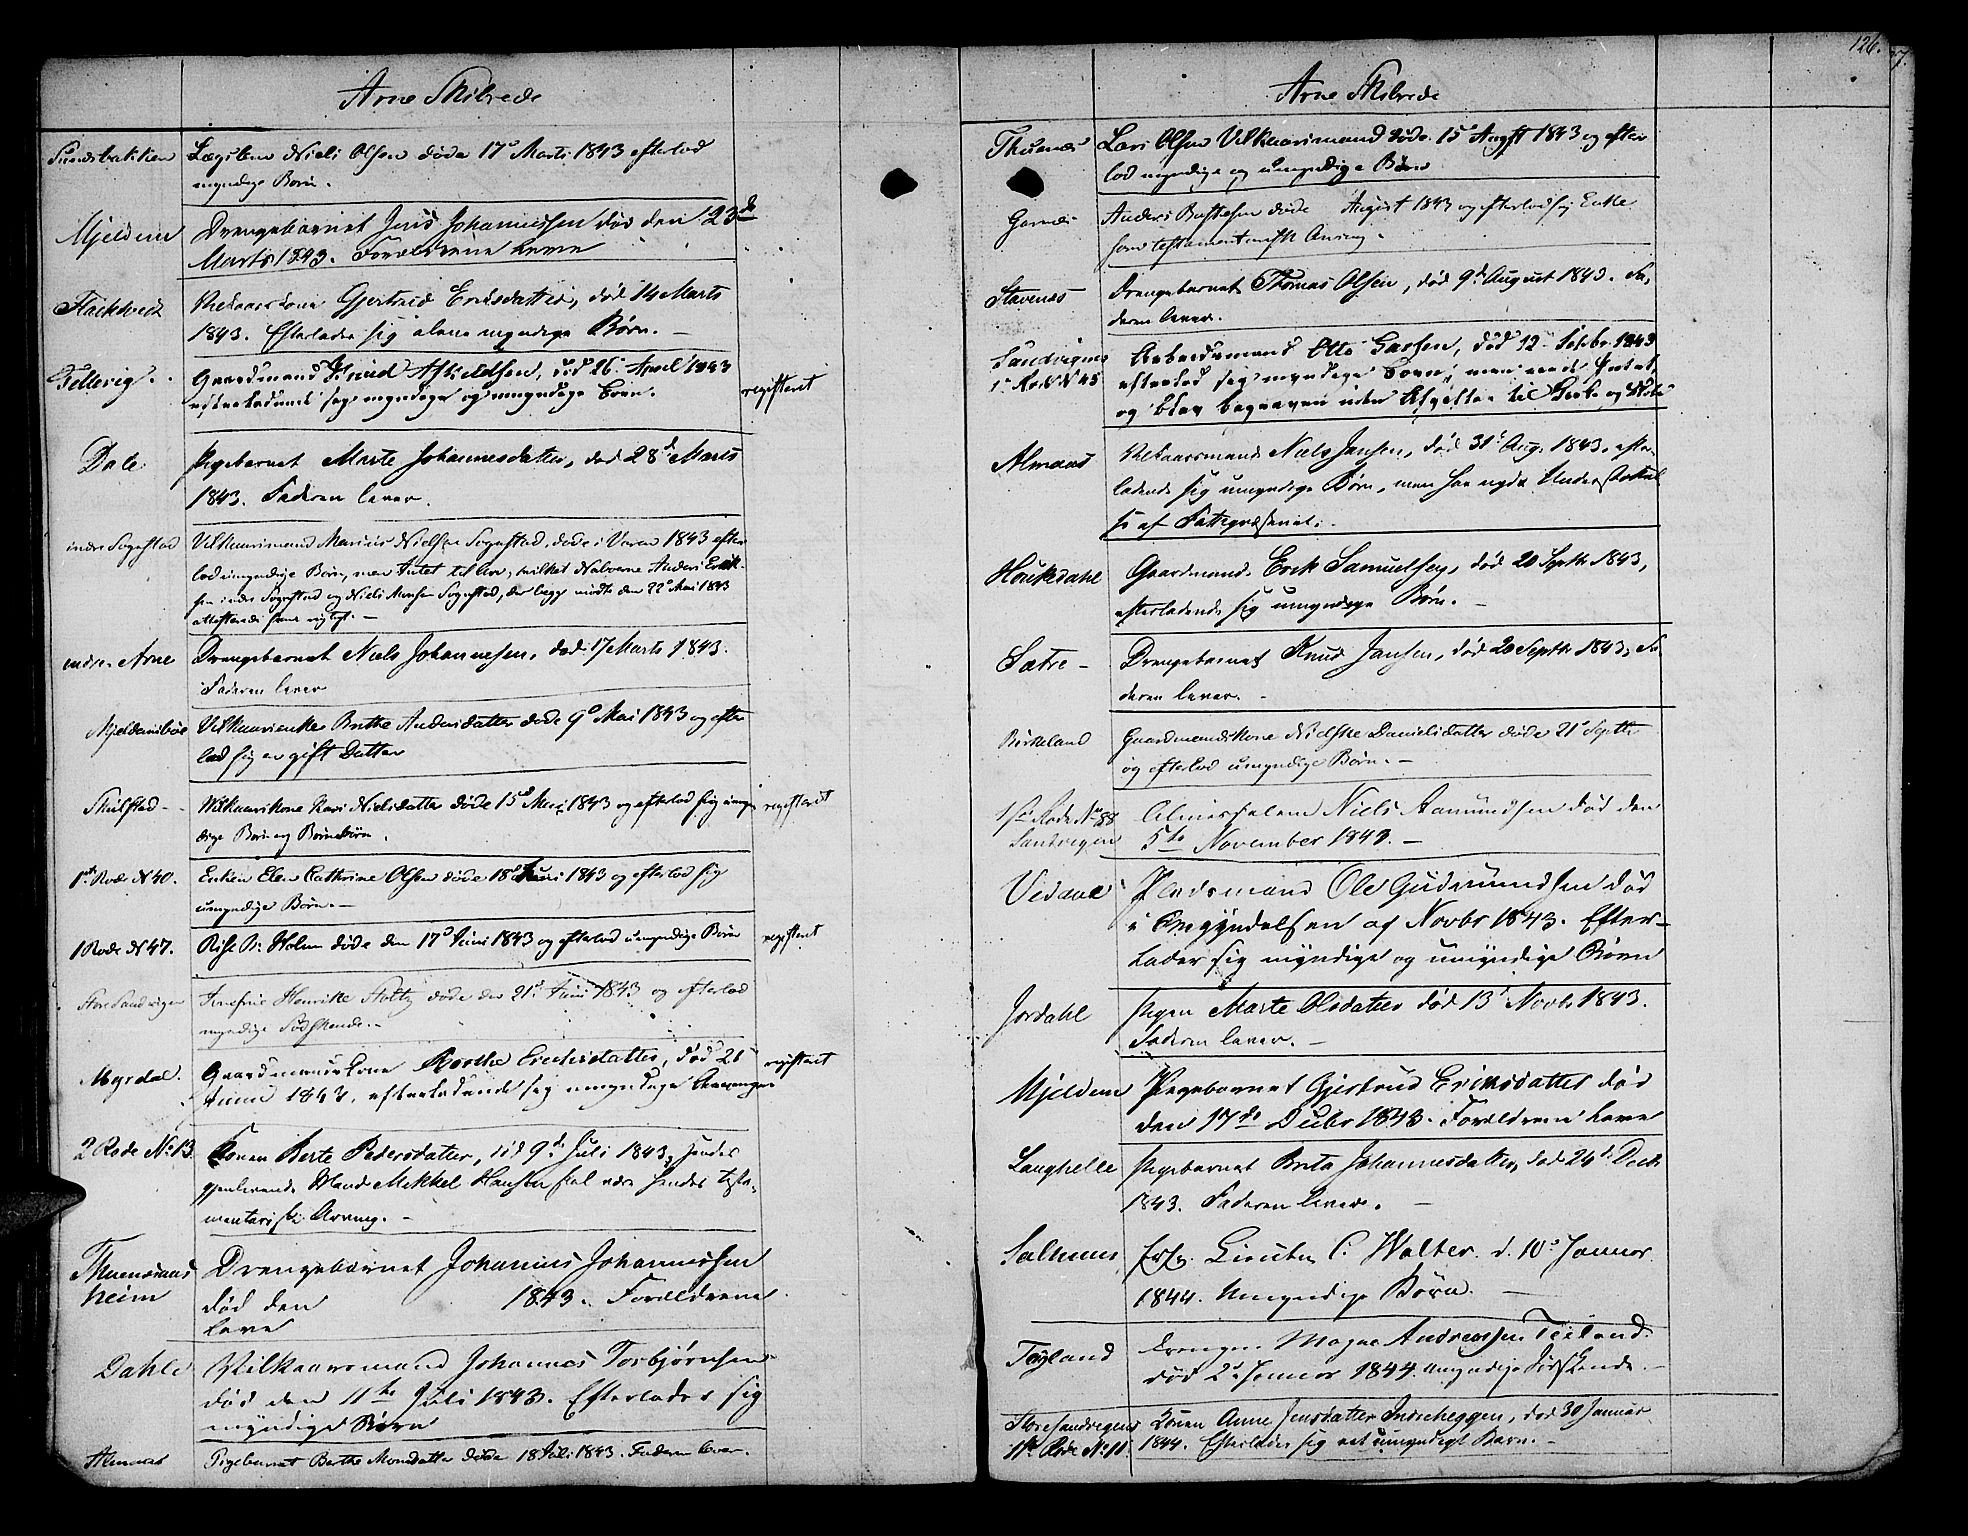 Arne Skibrede
Lægslem Niels Olsen døde 17de Marts 1843 efterlod
myndige Børn.
Mjeldem Drengebarnet Jens Johannessen død den 23de
Marts 1843. Forældrene leve
Gjertrud Eriksdatter, død 14 Marts
1843. Efterlader sig alene myndige Børn.
Gaardmand Knud Askildsen, død 26 April 1843
efterladende sig myndige og umyndige Børn. registeret
Dale Pigebarnet Marte Johannesdatter, død 28de Marts
1843. Faderen lever.
indre Sognstad Vilkaarsmand Marius Nielsen Sognstad, døde i Vaaren 1843 efter
lod umyndige Børn, men Intet til Arv, hvilket Naboerne Anders Erik-
sen indre Sognstad og Niels Monsen Sognstad, der begge mødte den 22de Mai 1843
attesterede være rigtigt.
indre Arne Drengebarnet Niels Johannesen, død 17 Marts 1843.
Faderen lever
Mjeldemsbøe Vilkaarsenke Brithe Andersdatter døde 9de Mai 1843 og efter
lod sig en gift Datter
Vilkaarskone Kari Nielsdatter døde 15de Mai 1843 og efterlod sig umyn registeret
dige Børn og Børnebørn.
1ste Rode N 40. Enken Elen Cathrine Olsen døde 18de Juni 1843 og efterlod sig
umyndige Børn.
1 Rode N 47. Holm døde den 17de Juni 1843 og efterlod umyndige Børn registeret
Store Sandvigen Jomfrue Henrike Holtz døde den 21de Juni 1843 og efterlod
myndige Sødskende.
Myrdal. Gaardmandskone død 21 registeret
Juni 1843, efterladende sig umyndige Arvinger
2 Rode No 13 Konen Berte Pedersdatter, død 9de Juli 1843, hendes
gjenlevende Mand Mikkel Hansen skal være hendes testa-
mentariske Arving.
Drengebarnet Johannes Johannessen
heim død den 1843. Forældrene
leve
Dahle Vilkaarsmand Johannes Torbjørnsen
død den 11te Juli 1843. Efterlader sig
myndige Børn
Almaas Pigebarnet Berthe Monsdatter døde 18 Juli 1843. Faderen lever.
126.
Arne Skibrede
Thunes Lars Olsen Vilkaarsmand døde 15de Augst 1843 og efter
lod myndige og umyndige Børn
Garnes Anders døde August 1843 og efterlod sig Enke
som testamentarisk Arving.
Stavenes Drengebarnet Thomas Olsen, død 9de August 1843. Fa-
deren lever.
Sandvigens Arbeidsmand Otto Larsen, død 12 Septbr 1843
1ste Rode N 45 efterlod sig myndige Børn, men eiede Intet,
og blev begraven uden Afgifter til Kirke og Skole
Almaas Vilkaarsmand Niels Jansen, død 31te Aug. 1843, efter-
ladende sig umyndige Børn, men har nydt Understøttel
se af Fattigvæsenet.
Houkedahl Gaardmand Erik Samuelsen, død 20 Septbr 1843,
efterladende sig umyndige Børn.
Sætre Drengebarnet Knud Jansen, død 20 Septbr 1843, Fa-
deren lever.
Birkeland Gaardmandskone Nielske Danielsdatter døde 21de Septbr
og efterlod umyndige Børn.
1ste Rode No 88 Almisselem Niels Aamundsen død den
Sandvigen 5te November 1843.
Vidane Pladsmand Ole Gudmundsen død
i Begyndelsen af Novbr 1843. Efter-
lader sig myndige og umyndige Børn
Jordahl Pigen Marte Olsdatter død 13de Novbr 1843.
Faderen lever.
Mjeldem Pigebarnet Gjertrud Eriksdatter død
den 17de Dcbr 1843. Forældrene leve
Langhelle Pigebarnet Brita Johannesdatter, død 24de Decbr
1843. Faderen lever.
Salhuus Lieutn C. Walter d. 10de Januar
1844. Umyndige Børn.
Teyland Drengen Mogne Andreassen Teiland.
død 2de Januar 1844. umyndige Sødskende.
Store sandvigens Konen Anne Jensdatter Indreheggen, død 30 Januar
1ste Rode No 11. 1844. Efterlader sig eet umyndigt Barn.